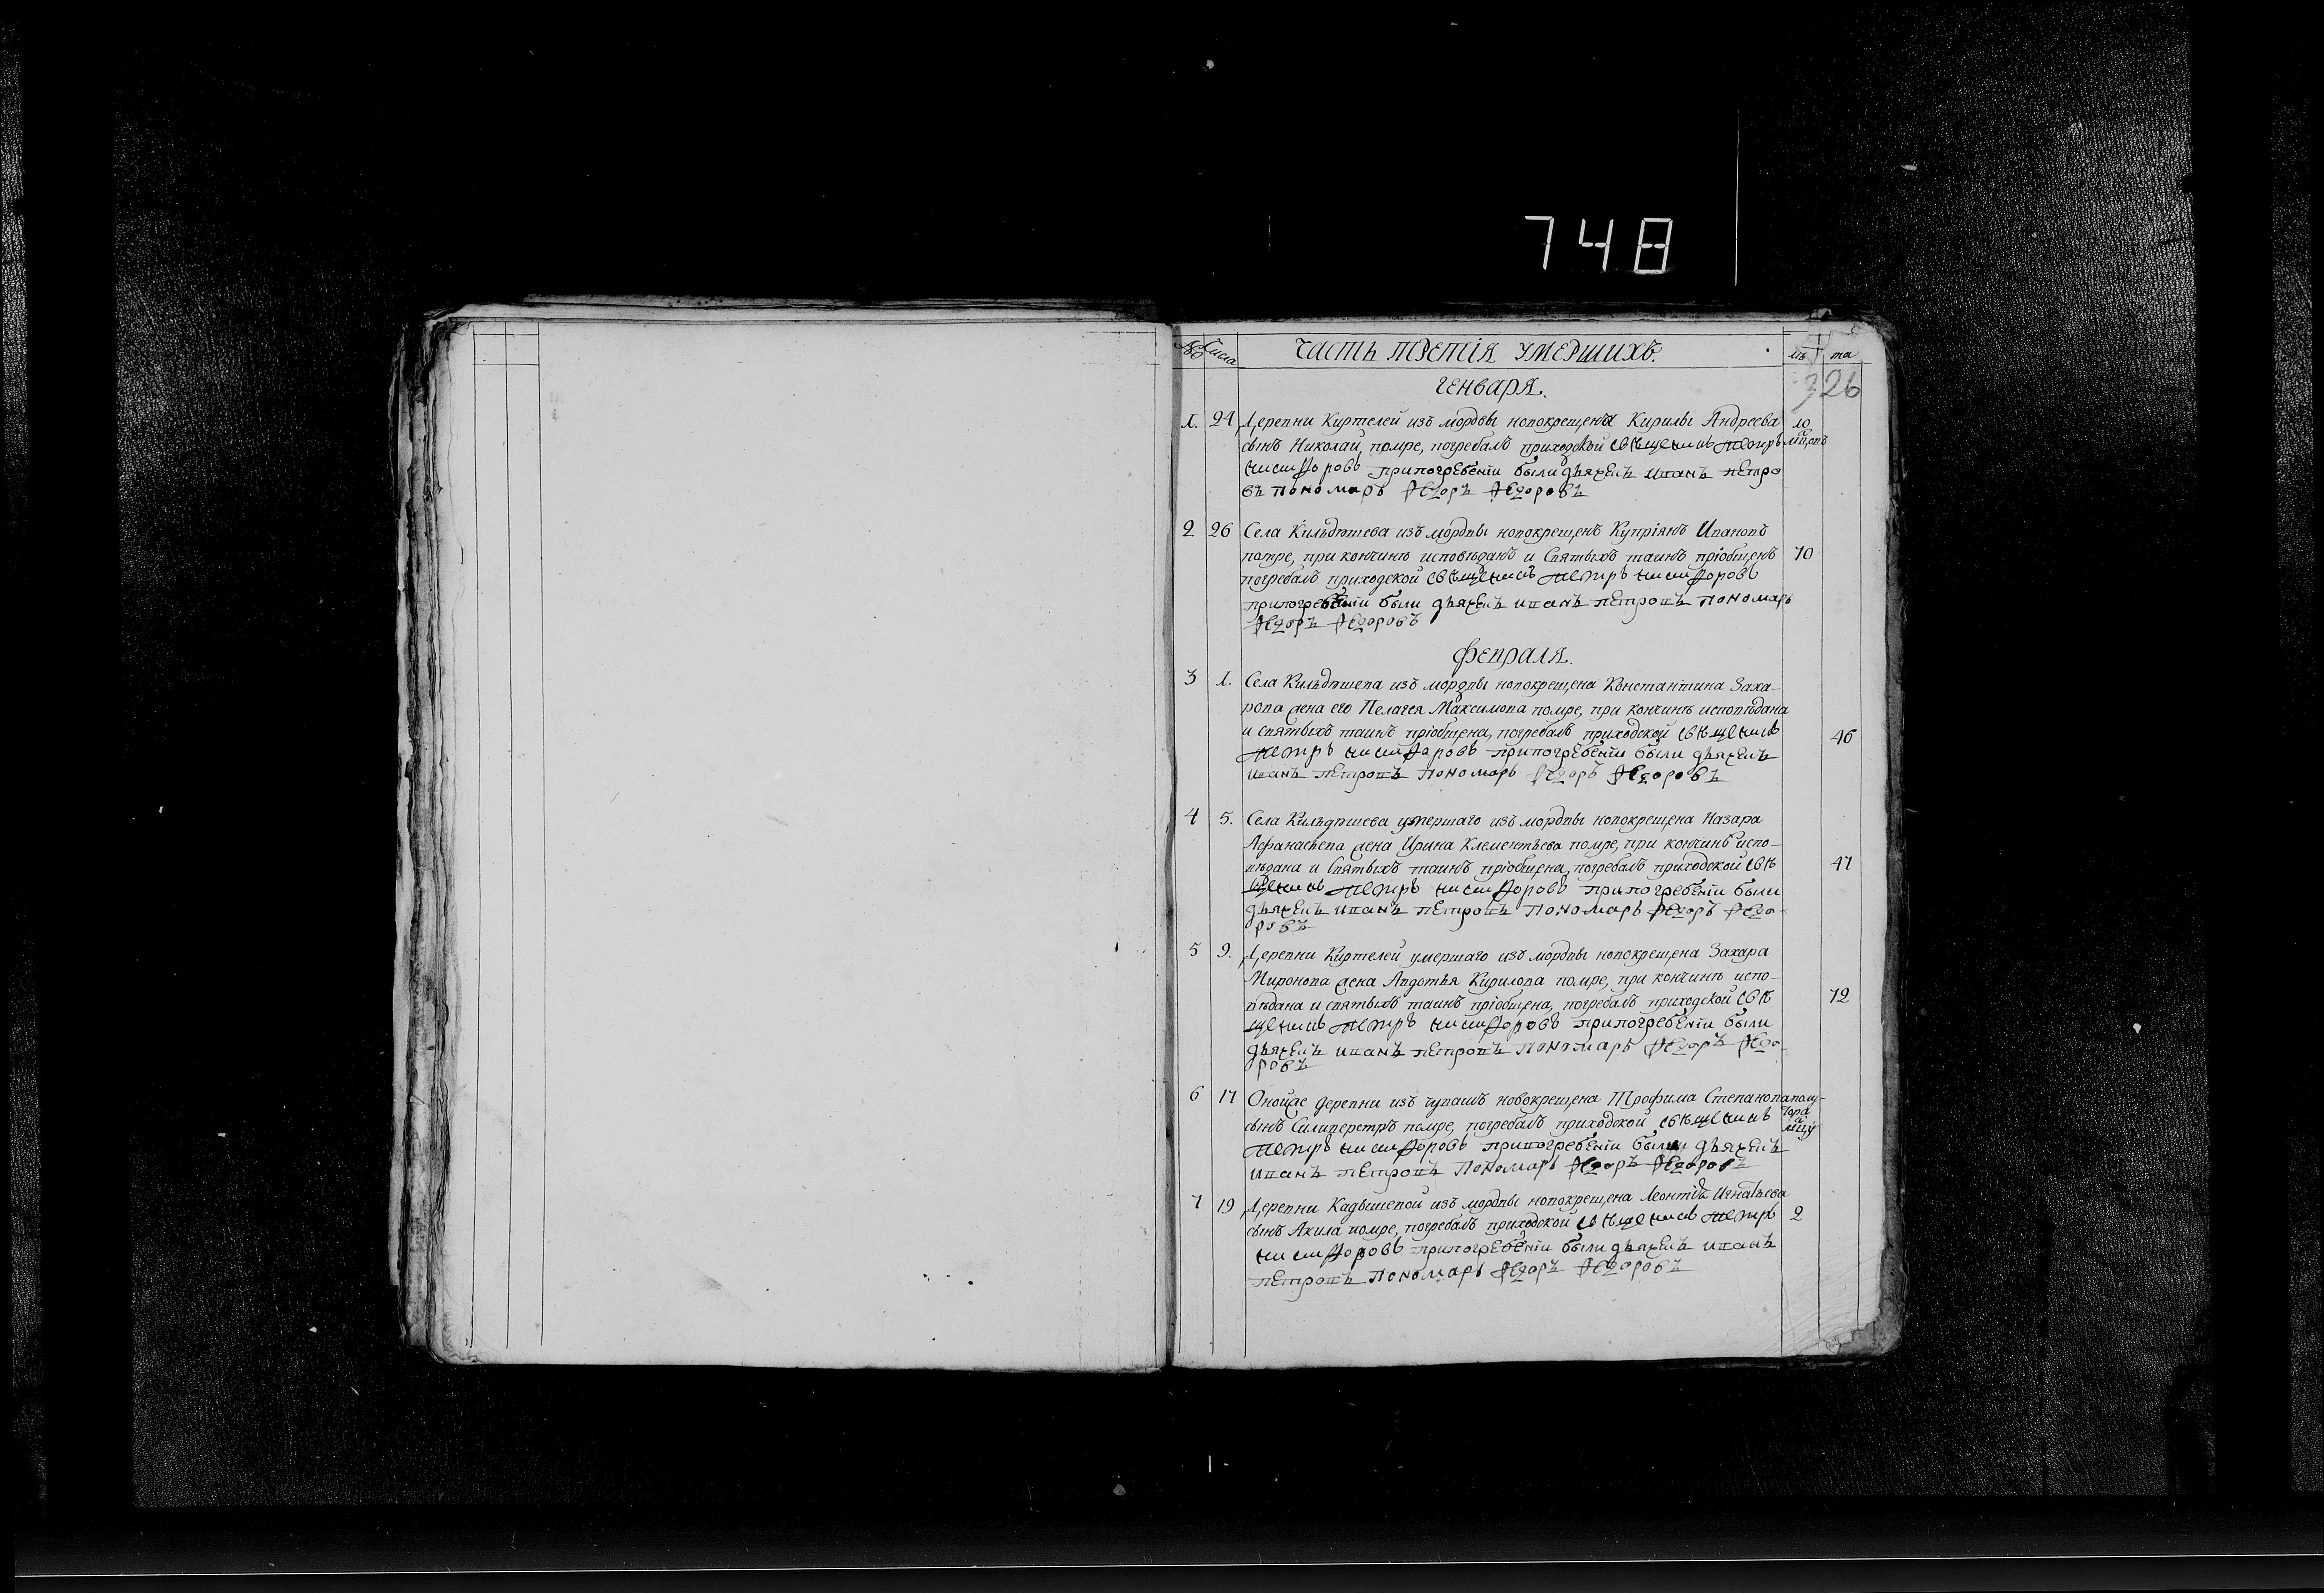 748
№ Числа ЧАСТЬ ТРЕТІЯ УМЕРШИХЪ. лѣ та
326
ГЕНВАРЯ.
1. 24 Деревни Киртелей изъ мордвы новокрещена Кирилы Андреева 10
сынъ Николай, помре, погребалъ приходской свѣщеникъ Петръ мцовъ
Никифоровъ припогребеніи были дьячекъ иванъ петро
въ пономарь Ѳедоръ Ѳедоровъ
2 26 Села Кильдюшева изъ мордвы новокрещенъ Купріянъ Ивановъ
помре, при кончинѣ исповѣданъ и Святыхъ таинъ пріобщенъ 70
погребалъ приходской свѣщеникъ Петръ Никифоровъ
припогребеніи были дьячекъ иванъ петровъ пономарь
Ѳедоръ Ѳедоровъ
ФЕВРАЛЯ.
3 1. Села Кильдюшева изъ мордвы новокрещена Константина Заха-
рова жена его Пелагея Максимова помре, при кончинѣ исповѣдана
и святыхъ таинъ пріобщена, погребалъ приходской свѣщеникъ 46
Петръ Никифоровъ припогребеніи были дьячекъ
иванъ петровъ пономарь Ѳедоръ Ѳедоровъ
4 5. Села Кильдюшева умершаго изъ мордвы новокрещена Назара
Афанасьева жена Ирина Клементьева помре, при кончинѣ испо-
вѣдана и Святыхъ таинъ пріобщена, погребалъ приходской свѣ 47
щеникъ Петръ Никифоровъ припогребеніи были
дьячекъ иванъ петровъ пономарь Ѳедоръ Ѳедо-
ровъ
5 9. Деревни Киртелей умершаго изъ мордвы новокрещена Захара
Миронова жена Авдотья Кирилова помре, при кончинѣ испо-
вѣдана и святыхъ таинъ пріобщена, погребалъ приходской свѣ 72
щеникъ Петръ Никифоровъ припогребеніи были
дьячекъ иванъ петровъ пономарь Ѳедоръ Ѳедо-
ровъ
6 17 Оной же деревни изъ чувашъ новокрещена Трофима Степанова полу-
сынъ Силиверстръ помре, погребалъ приходской свѣщеникъ тора
Петръ Никифоровъ припогребеніи были дьячекъ мцу
иванъ петровъ пономарь Ѳедоръ Ѳедоровъ
7 19 Деревни Кадышевой изъ мордвы новокрещена Леонтія Игнатьева
сынъ Акила помре, погребалъ приходской свѣщеникъ Петръ 2
Никифоровъ припогребеніи были дьячекъ иванъ
петровъ пономарь Ѳедоръ Ѳедоровъ